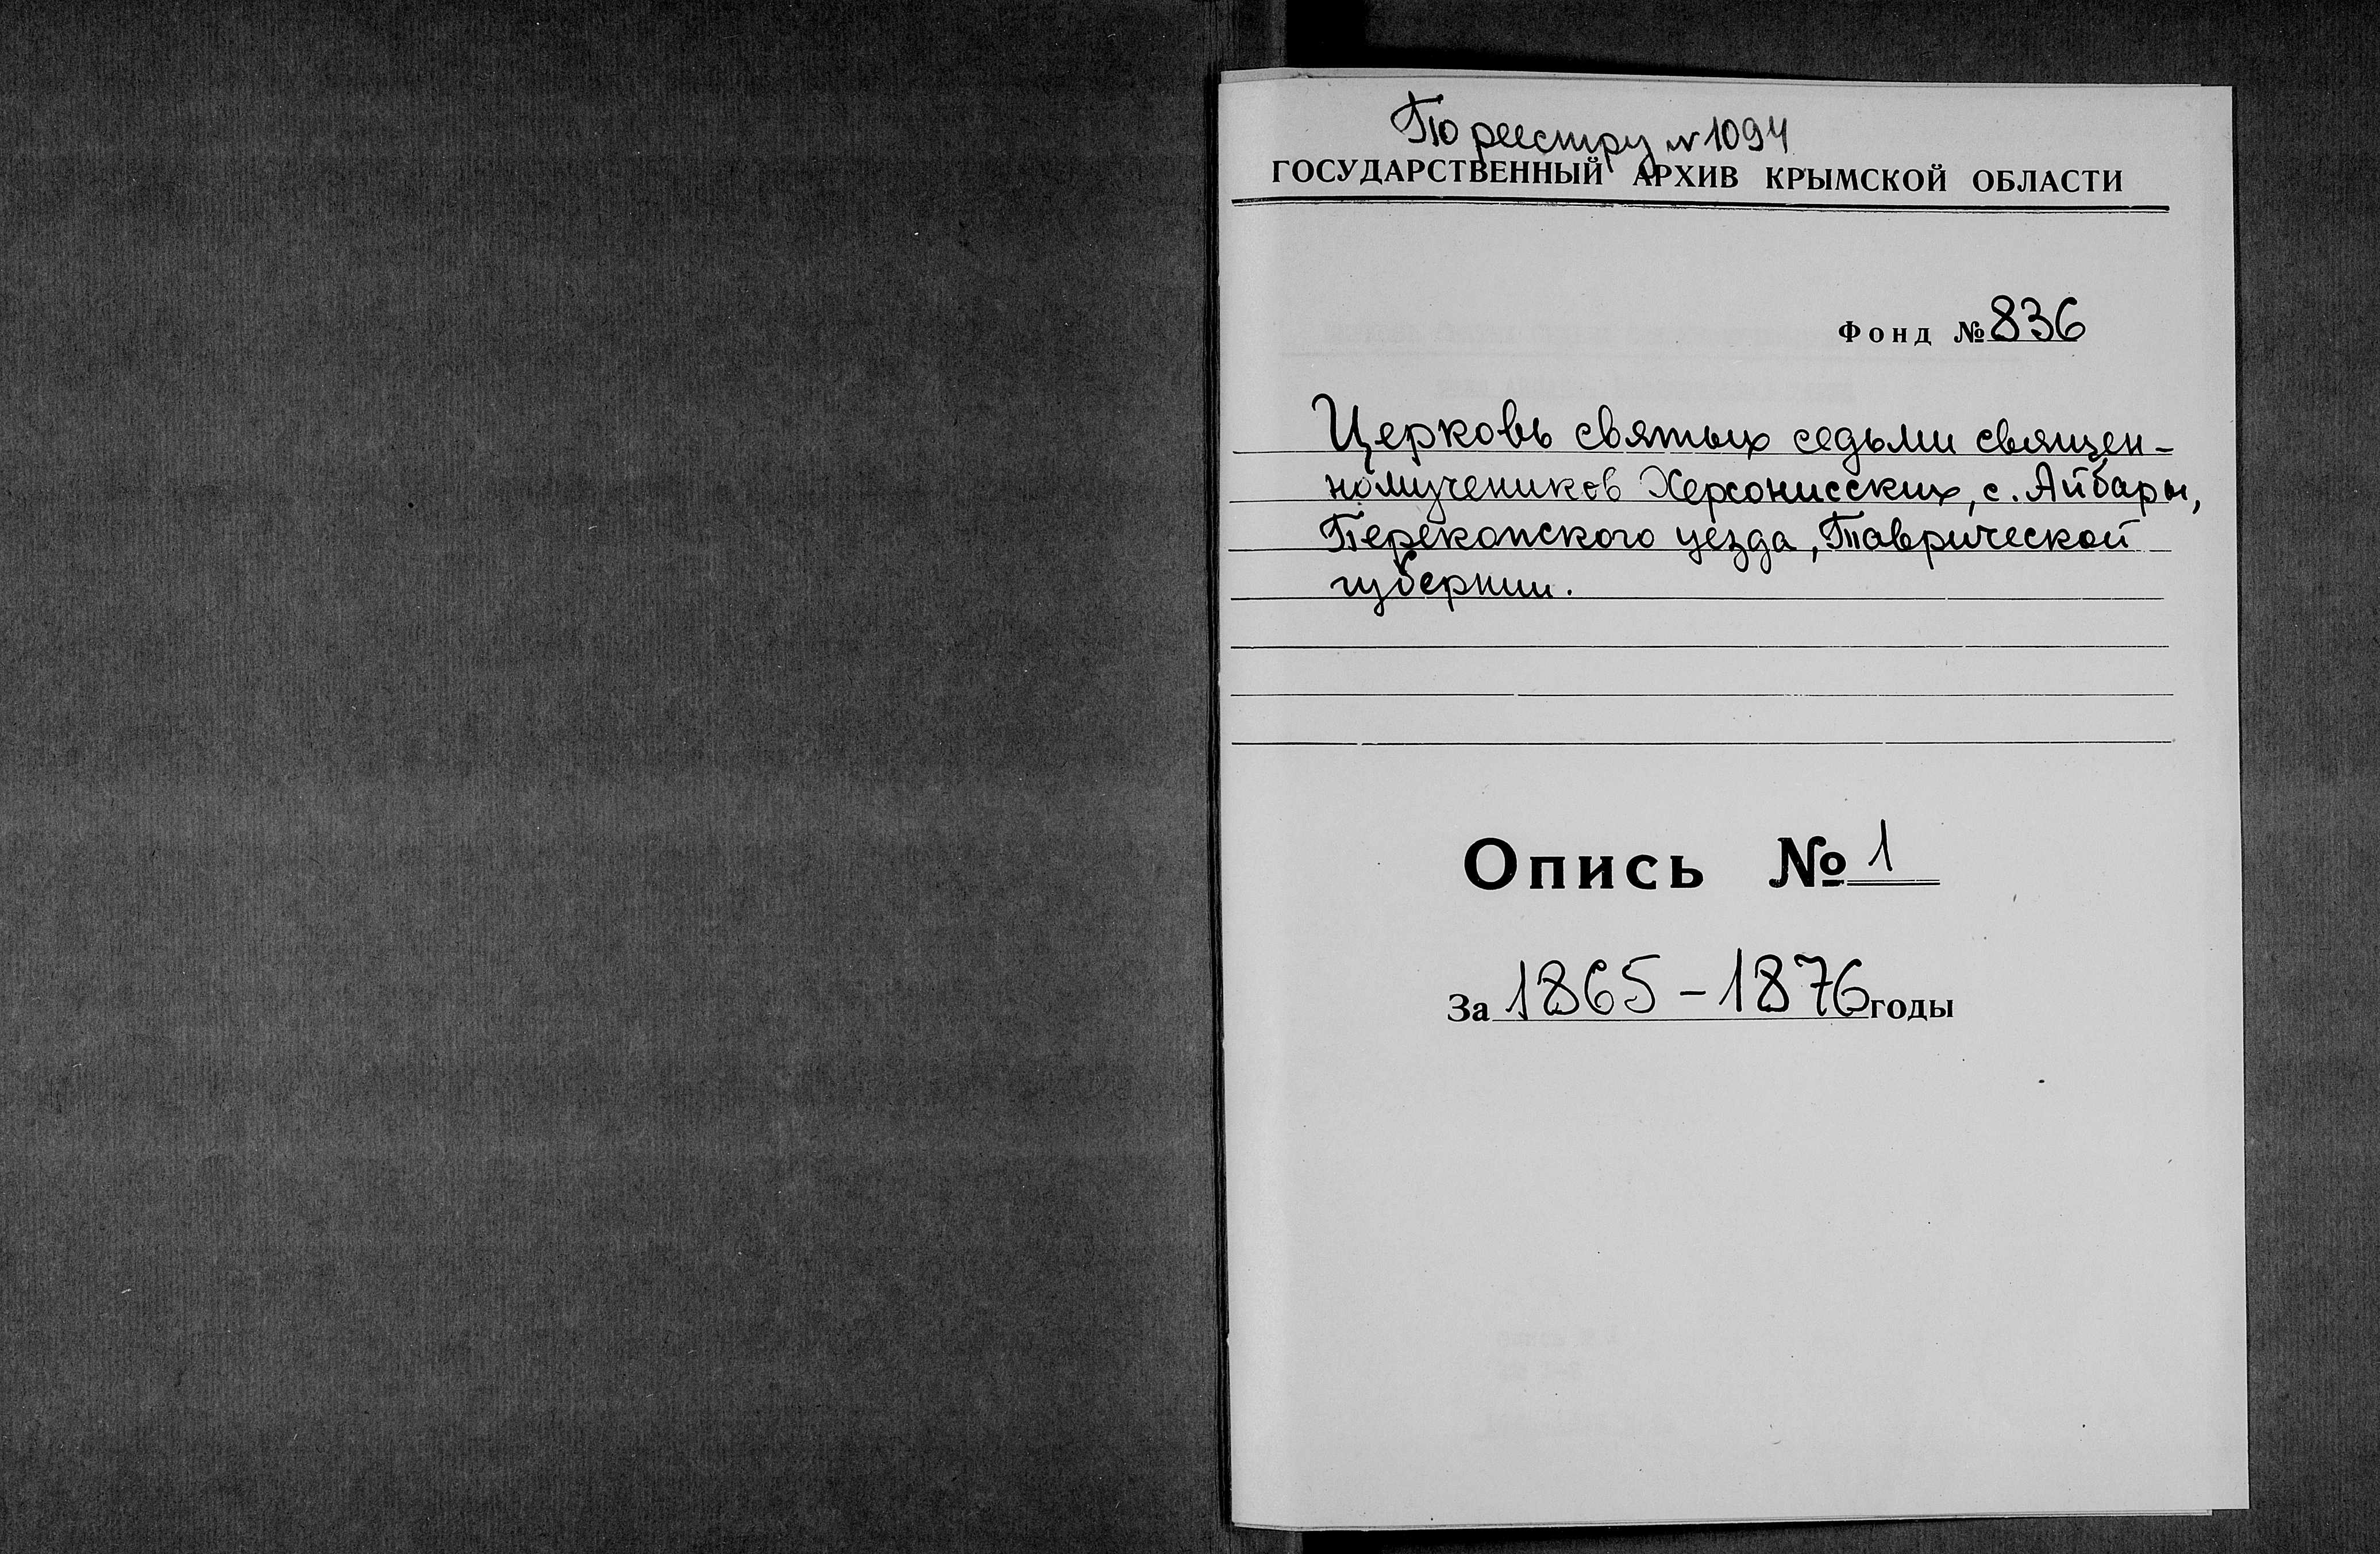 По реестру № 1094
ГОСУДАРСТВЕННЫЙ АРХИВ КРЫМСКОЙ ОБЛАСТИ
Фонд № 836
Церковь святых седьми священ-
номучеников Херсонисских, с. Айбары,
Перекопского уезда, Таврической
губернии.
Опись № 1
За 1865 – 1876 годы